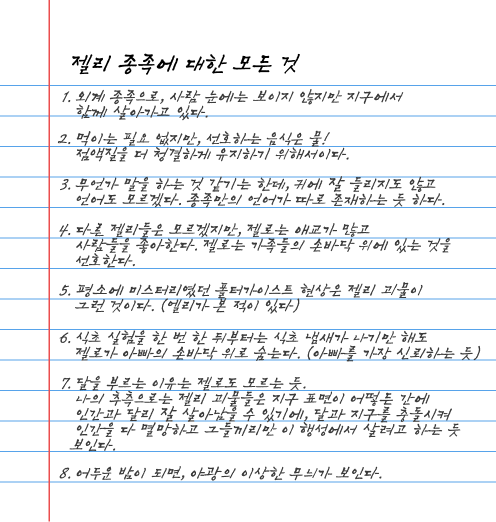 젤리 종족에 대한 모든 것
1. 외계 종족으로, 사람 눈에는 보이지 않지만 지구에서
함께 살아가고 있다.
2. 먹이는 필요 없지만, 선호하는 음식은 물!
점액질을 더 청결하게 유지하기 위해서이다.
3. 무언가 말을 하는 것 같기는 한데, 귀에 잘 들리지도 않고
언어도 모르겠다. 종족만의 언어가 따로 존재하는 듯 하다.
4. 다른 젤리들은 모르겠지만, 젤로는 애교가 많고
사람들을 좋아한다. 젤로는 가족들의 손바닥 위에 있는 것을
선호한다.
5. 평소에 미스터리였던 폴터가이스트 현상은 젤리 괴물이
그런 것이다. (엘리가 본 적이 있다)
6. 식초 실험을 한 번 한 뒤부터는 식초 냄새가 나기만 해도
젤로가 아빠의 손바닥 위로 숨는다. (아빠를 가장 신뢰하는 듯)
7. 달을 부르는 이유는 젤로도 모르는 듯.
나의 추측으로는 젤리 괴물들은 지구 표면이 어떻든 간에
인간과 달리 잘 살아남을 수 있기에, 달과 지구를 충돌시켜
인간을 다 멸망하고 그들끼리만 이 행성에서 살려고 하는 듯
보인다.
8. 어두운 밤이 되면, 야광의 이상한 무늬가 보인다.